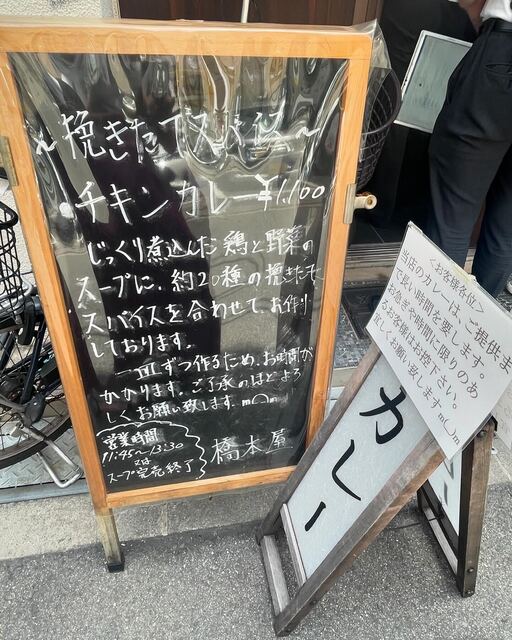 ～挽きたてスパイス～
・チキンカレー ¥1.100
じっくり煮込んだ鶏と野菜の
スープに、約20種の挽きたて
スパイスを合わせて、お作り
しております。
一皿ずつ作るため、お時間が
かかります。ご了承のほどよろ
しくお願い致します。m〇m
営業時間
11:45〜13:30
又は
スープ完売終了
橋本屋
〈お客様各位〉
当店のカレーは、ご提供ま
で長い時間を要します。
お急ぎや時間に限りのあ
るお客様はお控下さい。
宜しくお願い致します m〇m
カレー